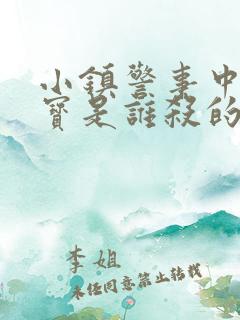 小鎮警事中
寶是誰殺的
李姐
未任同意禁止轉載